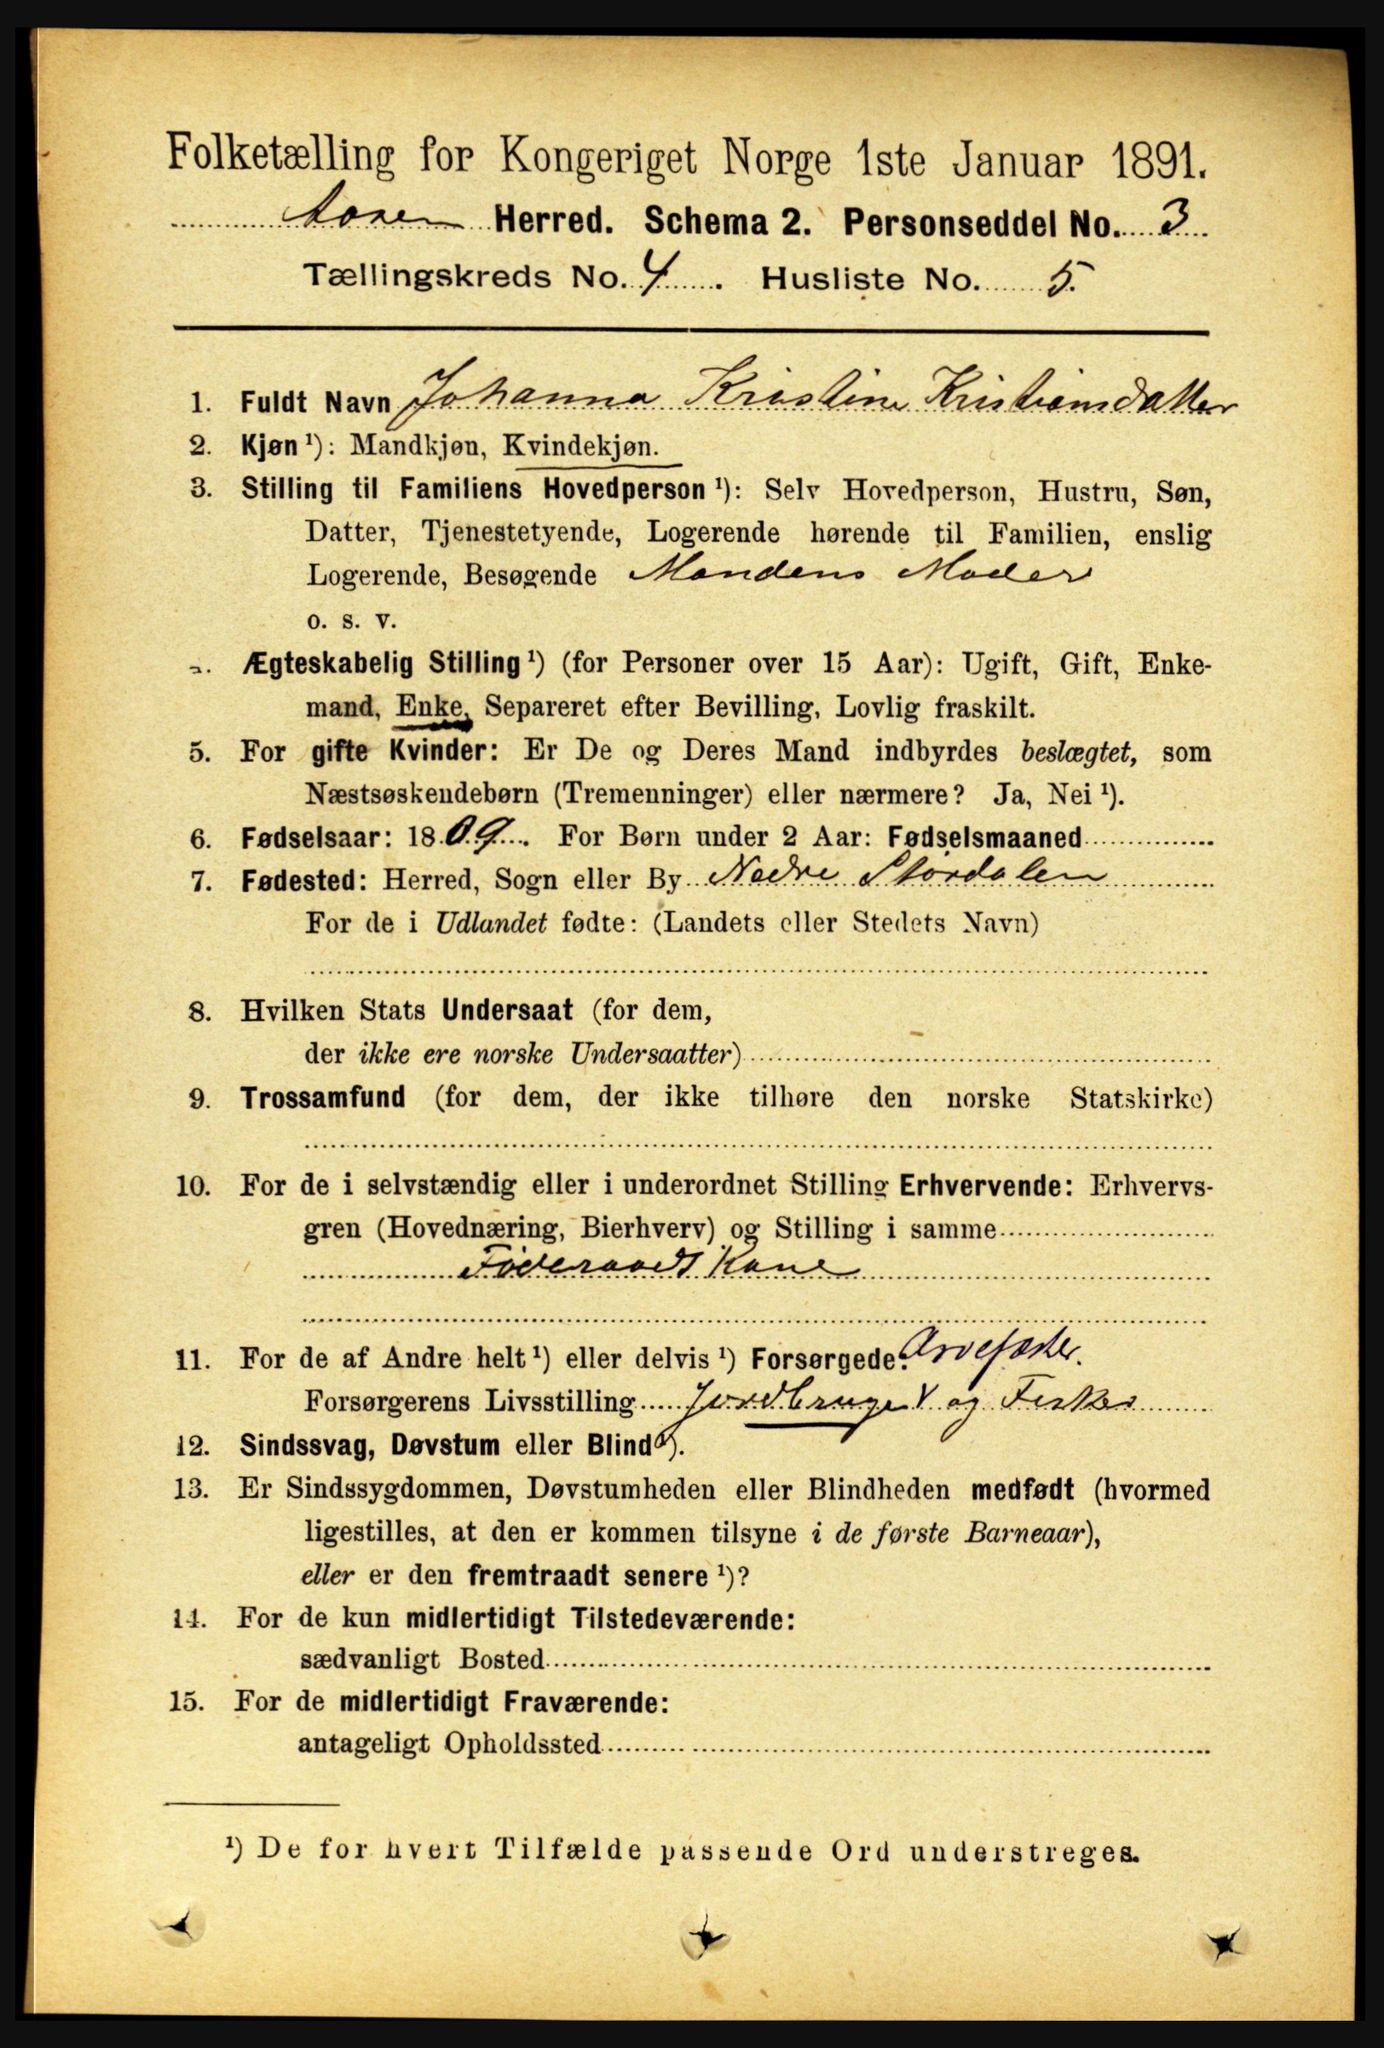 Folketælling for Kongeriget Norge 1ste Januar 1891.
Herred. Schema 2. Personseddel No. 3
Tællingskreds No. 4. Husliste No. 5.
1. Fuldt Navn Johanna Kristine Kristiansdatter
2. Kjøn ¹): Mandkjøn, Kvindekjøn.
3. Stilling til Familiens Hovedperson ¹): Selv Hovedperson, Hustru, Søn,
Datter, Tjenestetyende, Logerende hørende til Familien, enslig
Logerende, Besøgende Mandens Moder
o. s. v.
Ægteskabelig Stilling ¹) (for Personer over 15 Aar): Ugift, Gift, Enke-
mand, Enke, Separeret efter Bevilling, Lovlig fraskilt.
5. For gifte Kvinder: Er De og Deres Mand indbyrdes beslægtet, som
Næstsøskendebørn (Tremenninger) eller nærmere? Ja, Nei ¹).
6. Fødselsaar: 1809. For Børn under 2 Aar: Fødselsmaaned
7. Fødested: Herred, Sogn eller By Nedre Størdalen
For de i Udlandet fødte: (Landets eller Stedets Navn)
8. Hvilken Stats Undersaat (for dem,
der ikke ere norske Undersaatter)
9. Trossamfund (for dem, der ikke tilhøre den norske Statskirke)
10. For de i selvstændig eller i underordnet Stilling Erhvervende: Erhvervs-
gren (Hovednæring, Bierhverv) og Stilling i samme
Föderaads Kone
11. For de af Andre helt ¹) eller delvis ¹) Forsørgede: Arvefæster.
Forsørgerens Livsstilling Jordbruger og Fisker
12. Sindssvag, Døvstum eller Blind ¹).
13. Er Sindssygdommen, Døvstumheden eller Blindheden medfødt (hvormed
ligestilles, at den er kommen tilsyne i de første Barneaar),
eller er den fremtraadt senere ¹)?
14. For de kun midlertidigt Tilstedeværende:
sædvanligt Bosted
15. For de midlertidigt Fraværende:
antageligt Opholdssted
¹) De for hvert Tilfælde passende Ord understreges.